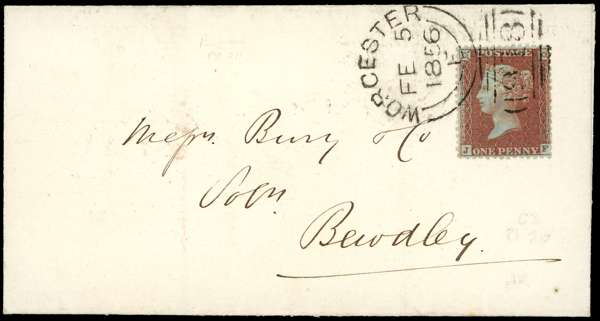 WORCESTER
FE 5
1856
POSTAGE
J ONE PENNY F
Messrs. Bury & Co
Solrs
Bewdley.